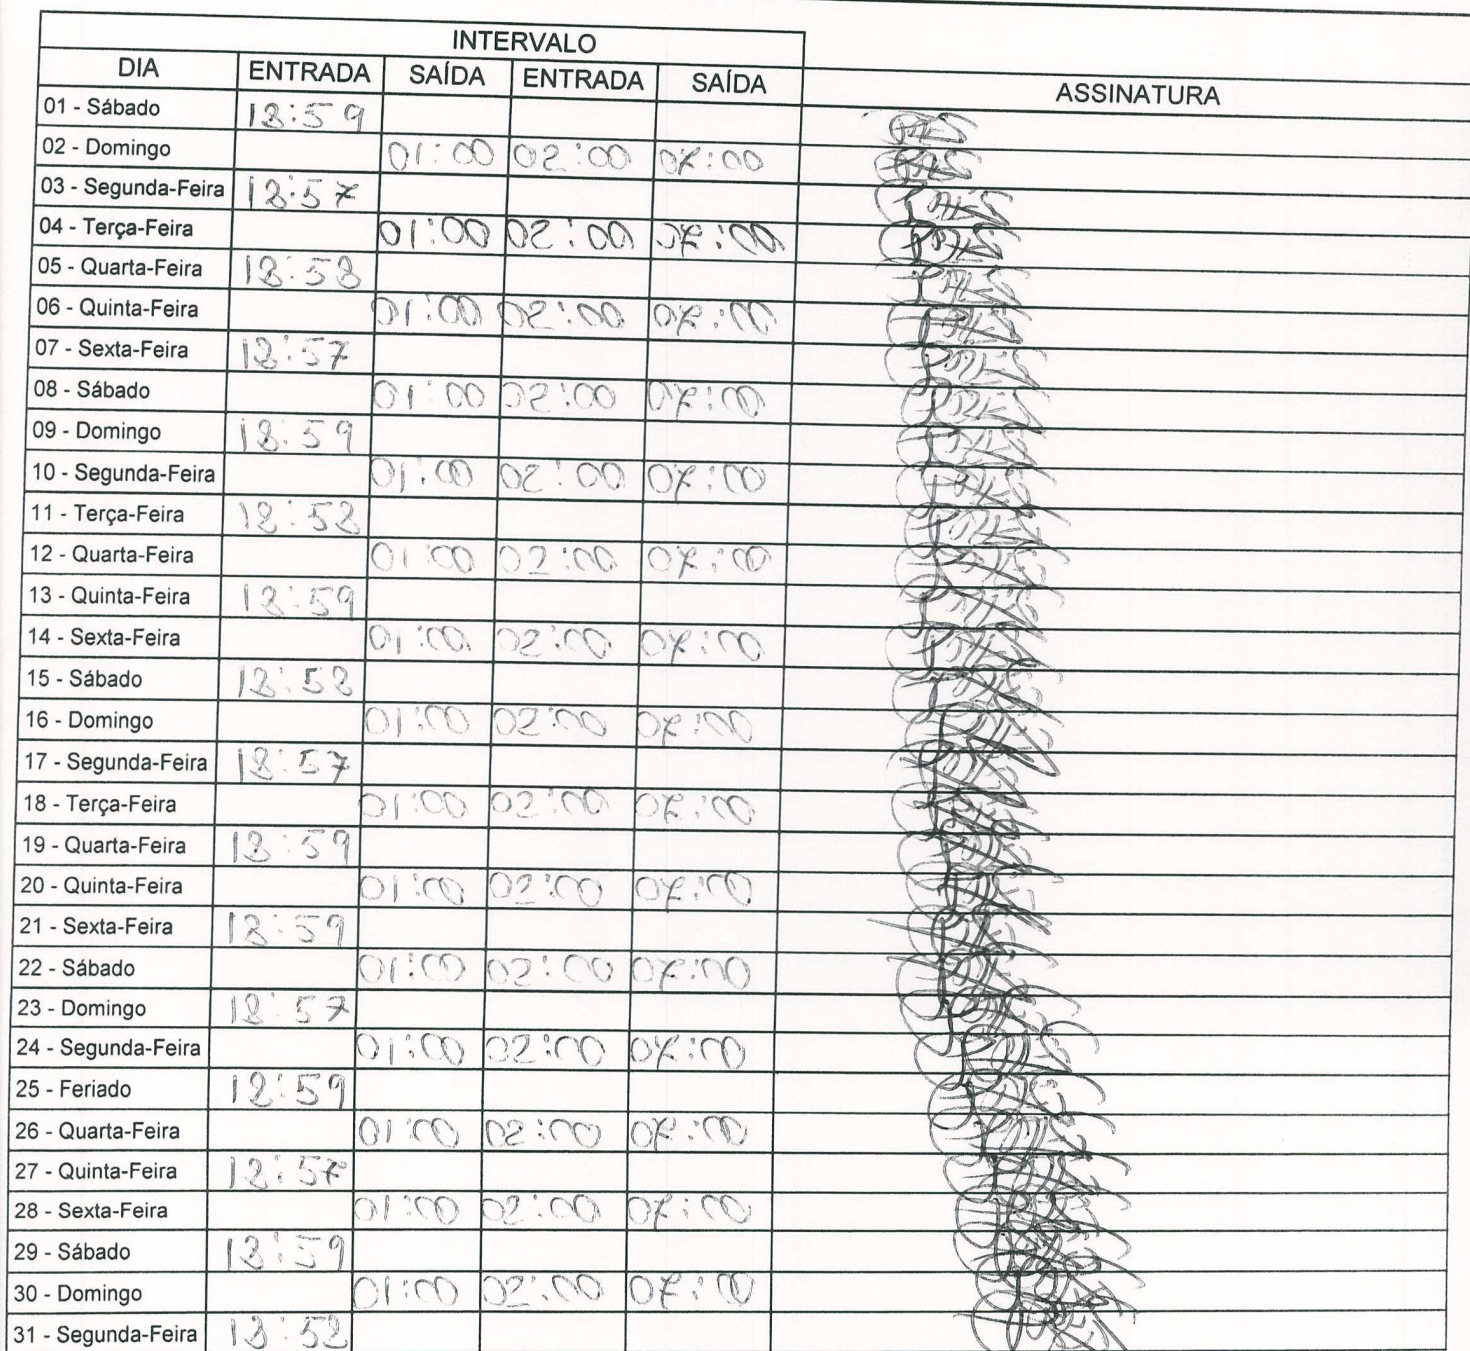 INTERVALO
DIA ENTRADA SAÍDA ENTRADA SAÍDA ASSINATURA
01 - Sábado 18:59
02 - Domingo 01:00 02:00 07:00
03 - Segunda-Feira 18:57
04 - Terça-Feira 01:00 02:00 07:00
05 - Quarta-Feira 18:58
06 - Quinta-Feira 01:00 02:00 07:00
07 - Sexta-Feira 18:57
08 - Sábado 01:00 02:00 07:00
09 - Domingo 18:59
10 - Segunda-Feira 01:00 02:00 07:00
11 - Terça-Feira 18:58
12 - Quarta-Feira 01:00 02:00 07:00
13 - Quinta-Feira 18:59
14 - Sexta-Feira 01:00 02:00 07:00
15 - Sábado 18:58
16 - Domingo 01:00 02:00 07:00
17 - Segunda-Feira 18:57
18 - Terça-Feira 01:00 02:00 07:00
19 - Quarta-Feira 18:59
20 - Quinta-Feira 01:00 02:00 07:00
21 - Sexta-Feira 18:59
22 - Sábado 01:00 02:00 07:00
23 - Domingo 18:57
24 - Segunda-Feira 01:00 02:00 07:00
25 - Feriado 18:59
26 - Quarta-Feira 01:00 02:00 07:00
27 - Quinta-Feira 18:57
28 - Sexta-Feira 01:00 02:00 07:00
29 - Sábado 18:59
30 - Domingo 01:00 02:00 07:00
31 - Segunda-Feira 18:58